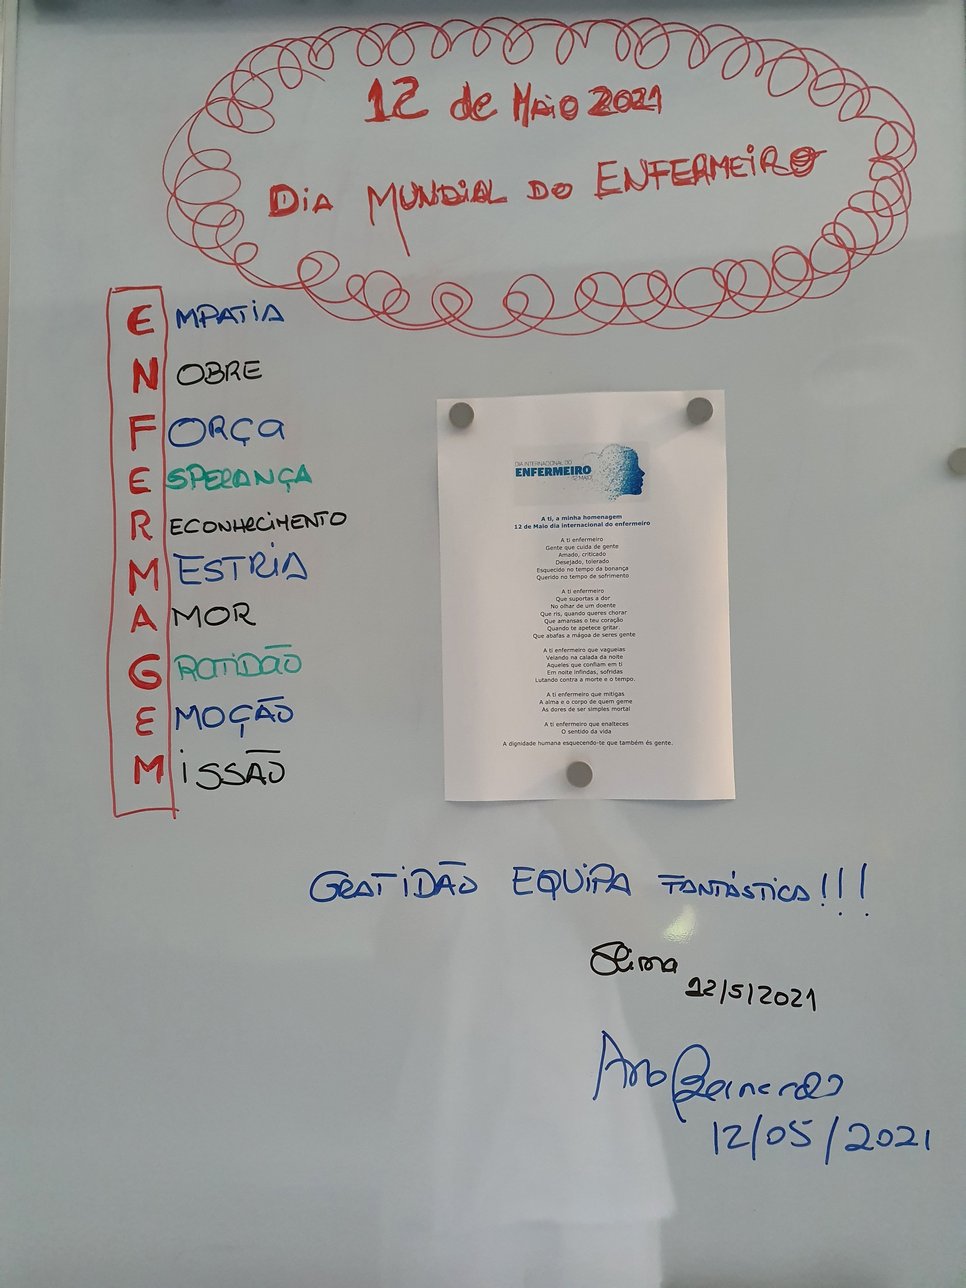 12 de Maio 2021
Dia Mundial do Enfermeiro
EMPATIA
NOBRE
FORÇA
ESPERANÇA
RECONHECIMENTO
MESTRIA
AMOR
GRATIDÃO
EMOÇÃO
MISSÃO
DIA INTERNACIONAL DO
ENFERMEIRO
12 MAIO
A ti, a minha homenagem
12 de Maio dia internacional do enfermeiro
A ti enfermeiro
Gente que cuida de gente
Amado, criticado
Desejado, tolerado
Esquecido no tempo da bonança
Querido no tempo de sofrimento
A ti enfermeiro
Que suportas a dor
No olhar de um doente
Que ris, quando queres chorar
Que amansas o teu coração
Quando te apetece gritar.
Que abafas a mágoa de seres gente
A ti enfermeiro que vagueias
Velando na calada da noite
Aqueles que confiam em ti
Em noite infindas, sofridas
Lutando contra a morte e o tempo.
A ti enfermeiro que mitigas
A alma e o corpo de quem geme
As dores de ser simples mortal
A ti enfermeiro que enalteces
O sentido da vida
A dignidade humana esquecendo-te que também és gente.
GRATIDÃO EQUIPA FANTÁSTICA!!!
12/5/2021
Ana Bernardo
12/05/2021